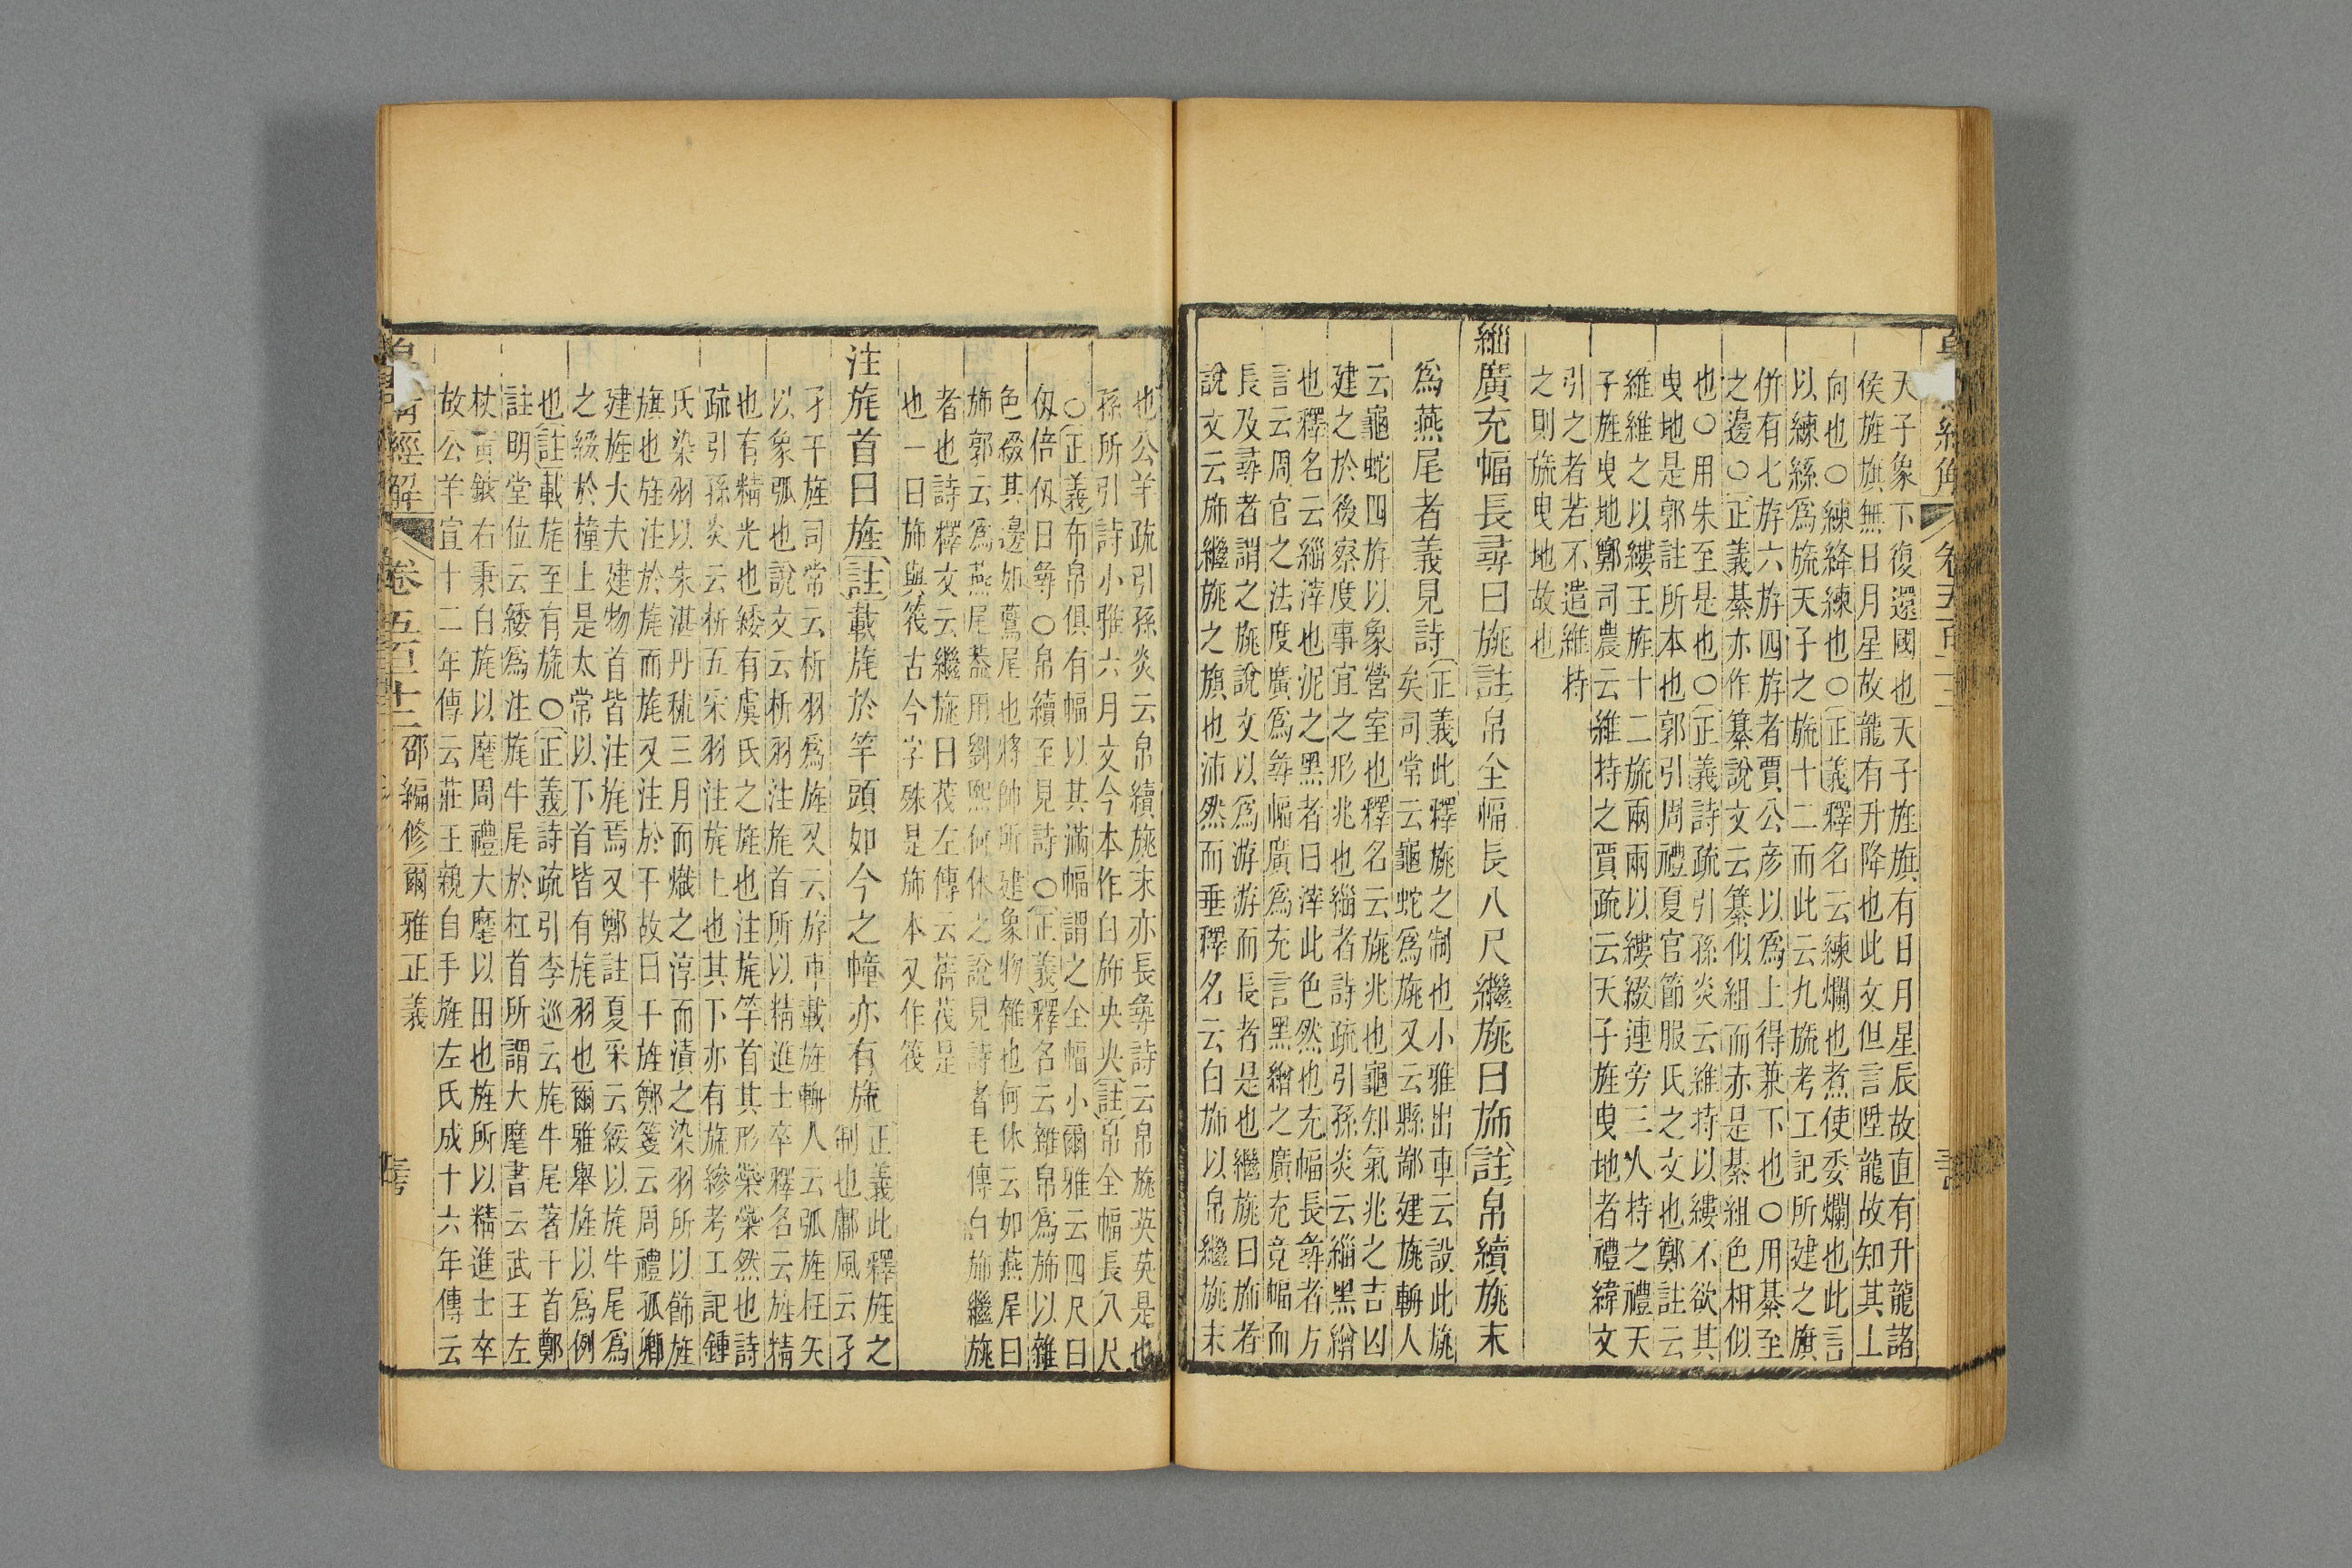 天子象下復還國也天子旌旗有日月星辰故直有升龍諸
侯旌旗無日月星故龍有升降也此文但言陞龍故知其上
向也○練絳練也○正義釋名云練爛也煮使委爛也此言
以練絲爲旒天子之旒十二而此云九旒考工記所建之旗
併有七斿六斿四斿者賈公彦以爲上得兼下也○用綦至
之邊○正義綦亦作纂說文云纂似組而赤是綦組色相似
也○用朱至是也○正義詩疏引孫炎云維持以縷不欲其
曳地是郭註所本也郭引周禮夏官節服氏之文也鄭註云
維維之以縷王旌十二旒兩兩以縷綴連旁三人持之禮天
子旌曳地鄭司農云維持之賈疏云天子旌曳地者禮緯文
引之者若不遣維持
之則旒曳地故也
緇廣充幅長尋曰旐註帛全幅長八尺繼旐曰旆註帛續旐末
爲燕尾者義見詩
正義此釋旐之制也小雅出車云設此旐
矣司常云龜蛇爲旐又云縣鄙建旐輈人
云龜蛇四斿以象營室也釋名云旐兆也龜知氣兆之吉凶
建之於後察度事宜之形兆也緇者詩疏引孫炎云緇黑繒
也釋名云緇滓也泥之黑者曰滓此色然也充幅長尋者方
言云周官之法度廣爲尋幅廣爲充言黑繒之廣充竟幅而
長及尋者謂之旐說文以爲游游而長者是也繼旐曰旆者
說文云旆繼旐之旗也沛然而垂釋名云白旆以帛繼旐末
也公羊疏引孫炎云帛續旐末亦長尋詩云帛旐英英是也
孫所引詩小雅六月文今本作白旆央央註帛全幅長八尺
○正義布帛俱有幅以其滿幅謂之全幅小爾雅云四尺曰
仭倍仭曰尋○帛續至見詩○正義釋名云雜帛爲旆以雜
色綴其邊如鷰尾也將帥所建象物雜也何休云如燕尾曰
旆郭云爲燕尾葢用劉熙何休之說見詩者毛傳白旆繼旐
者也詩釋文云繼旐曰茷左傳云蒨茷是
也一曰旆與筏古今字殊是旆本又作筏
注旄首曰旌註載旄於竿頭如今之幢亦有旒
正義此釋旌之
制也鄘風云孑
孑干旌司常云析羽爲旌又云斿車載旌輈人云弧旌枉矢
以象弧也說文云析羽注旄首所以精進士卒釋名云旌精
也有精光也緌有虞氏之旌也注旄竿首其形燊燊然也詩
疏引孫炎云析五采羽注旄上也其下亦有旒縿考工記鍾
氏染羽以朱湛丹秫三月而熾之淳而漬之染羽所以飾旌
旗也旌注於旄而旄又注於干故曰干旌鄭箋云周禮孤卿
建旌大夫建物首皆注旄焉又鄭註夏采云綏以旄牛尾爲
之綴於橦上是太常以下首皆有旄羽也爾雅舉旌以爲例
也註載旄至有旒○正義詩疏引李巡云旄牛尾著干首鄭
註明堂位云緌爲注旄牛尾於杠首所謂大麾書云武王左
杖黃鉞右秉白旄以麾周禮大麾以田也旌所以精進士卒
故公羊宣十二年傳云莊王親自手旌左氏成十六年傳云
皇淸經解
卷五百十二
邵編修爾雅正義